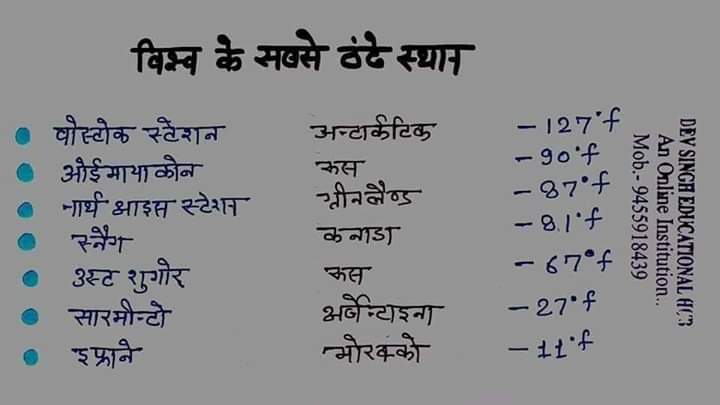 विश्व के सबसे ठंदे स्थान
वोस्टोक स्टेशन अन्टार्कटिक -127°f
ओईमायाकोन रूस -90°f
नार्थ आइस स्टेशन ग्रीनलैण्ड -87°f
स्नैग कनाडा -81°f
उस्ट शुगोर रूस -67°f
सारमौन्टो अर्जेन्टाइना -27°f
इफ्राने मोरक्को -11°f
DEV SINGH EDUCATIONAL HUB
An Online Institution..
Mob.- 9455918439